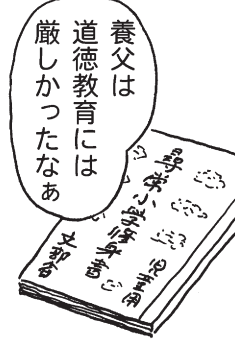 養父は
道徳教育には
厳しかったなぁ
尋常小學修身書
児童用
文部省